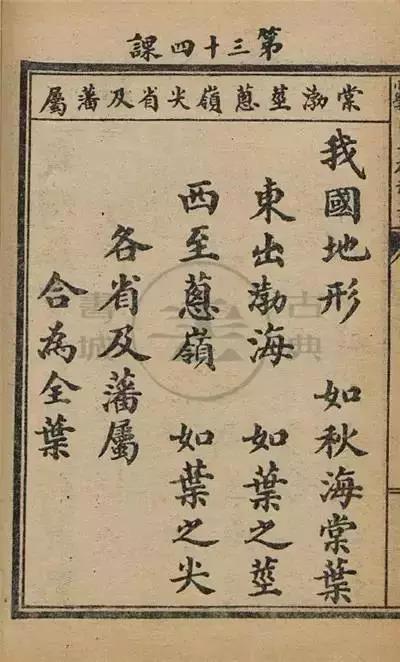 第三十四課
棠渤莖蔥嶺尖省及藩屬
我國地形 如秋海棠葉
東出渤海 如葉之莖
西至蔥嶺 如葉之尖
各省及藩屬
合為全葉
古典
書城